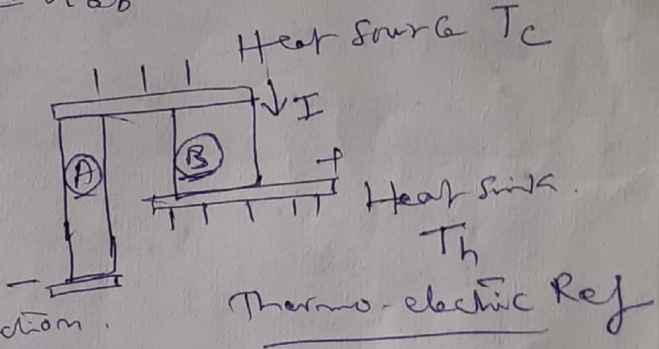 Heat Source Tc
I
A
B
+
Heat Sink.
Th
-
Thermo-electric Ref